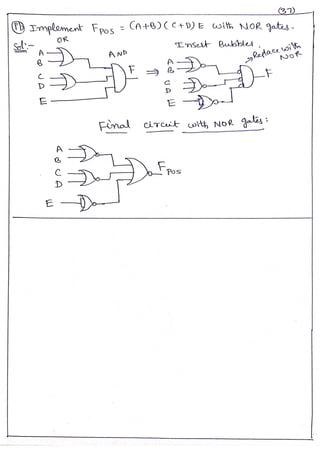 (37)
17) Implement F POS = (A+B)(C+D)E with NOR gates.
Sol:- OR AND Insert Bubbles.
Replace with NOR
A
B
C
D
E
F
⇒
A
B
C
D
E
F
Final circuit with NOR gates:
A
B
C
D
E
F POS